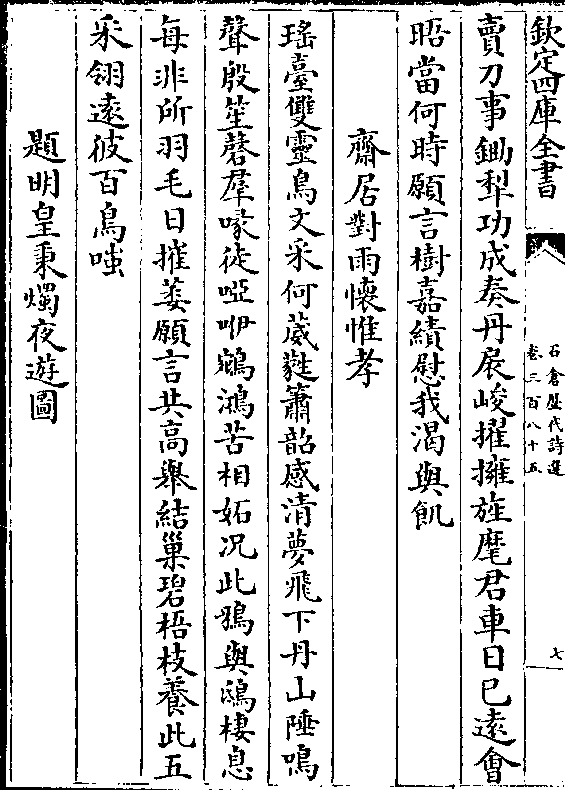 欽定四庫全書
石倉歷代詩選
卷三百八十五
七
賣刀事鋤犁功成奏丹扆峻擢擁旌麾君車日已遠會
晤當何時願言樹嘉績慰我渴與飢
齋居對雨懷惟孝
瑤臺雙靈鳥文采何葳蕤簫韶感清夢飛下丹山陲鳴
聲殷笙磬羣喙徒啞咿鵷鴻苦相妬况此鴉與鴟棲息
每非所羽毛日摧萎願言共高舉結巢碧梧枝養此五
采翎遠彼百鳥嗤
題明皇秉燭夜遊圖